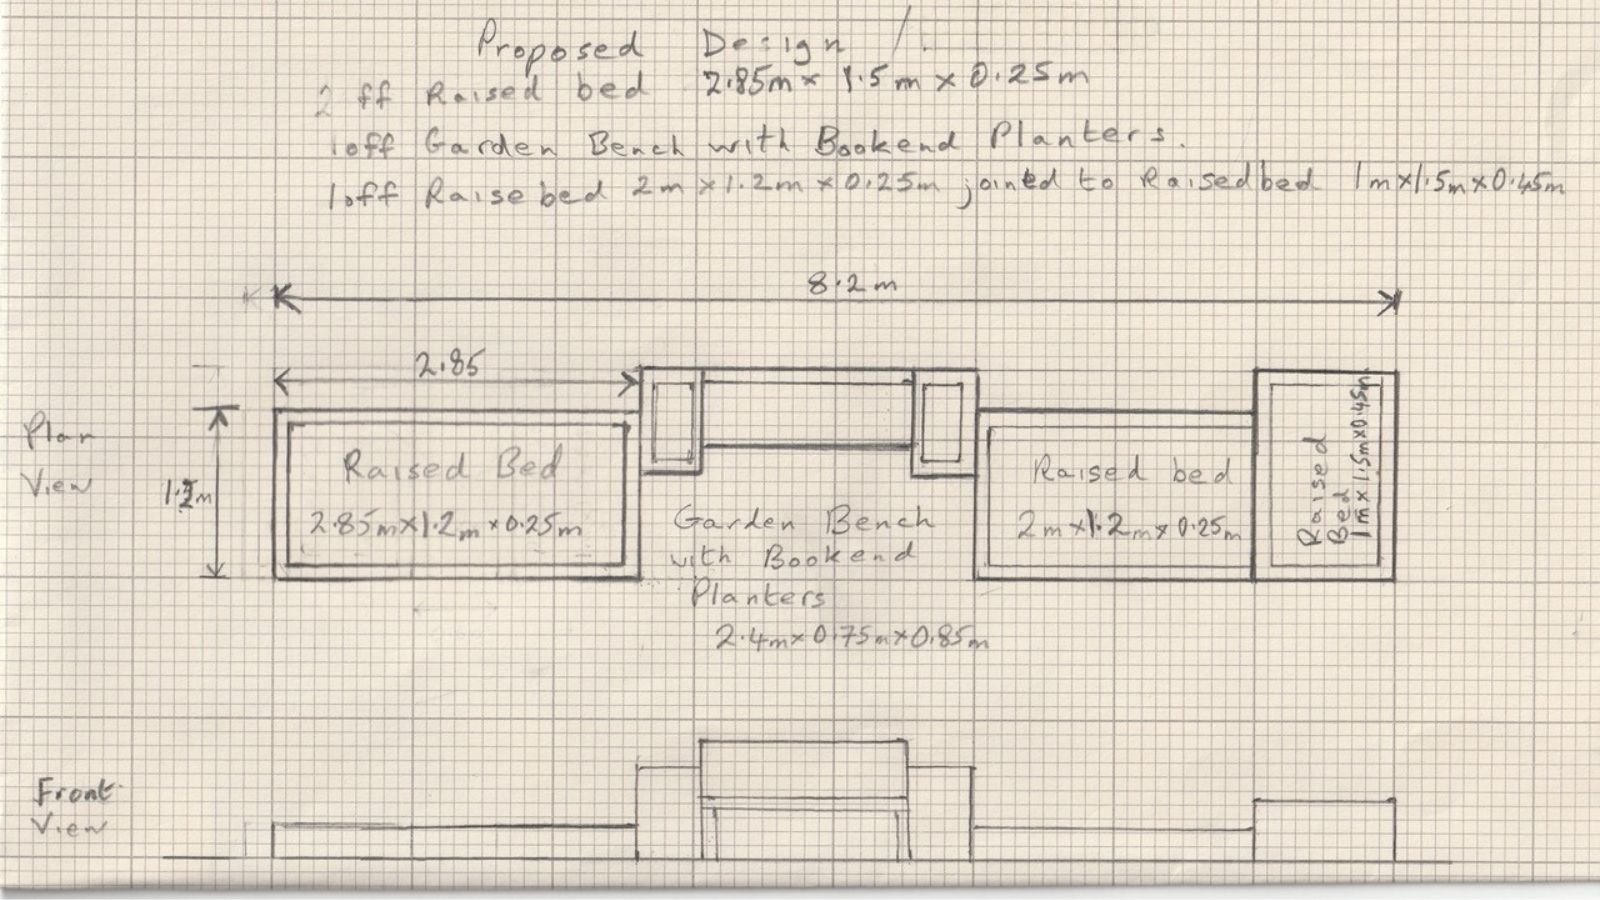 Proposed Design 1.
2 off Raised bed 2.85m x 1.5m x 0.25m
1off Garden Bench with Bookend Planters.
1off Raise bed 2m x 1.2m x 0.25m joined to Raisedbed 1m x 1.5m x 0.45m
8.2m
2.85
Plan
View
Raised Bed
2.85m x 1.2m x 0.25m
Garden Bench
with Bookend
Planters
2.4m x 0.75m x 0.85m
Raised bed
2m x 1.2m x 0.25m
Raised
Bed
1m x 1.5m x 0.45m
Front
View